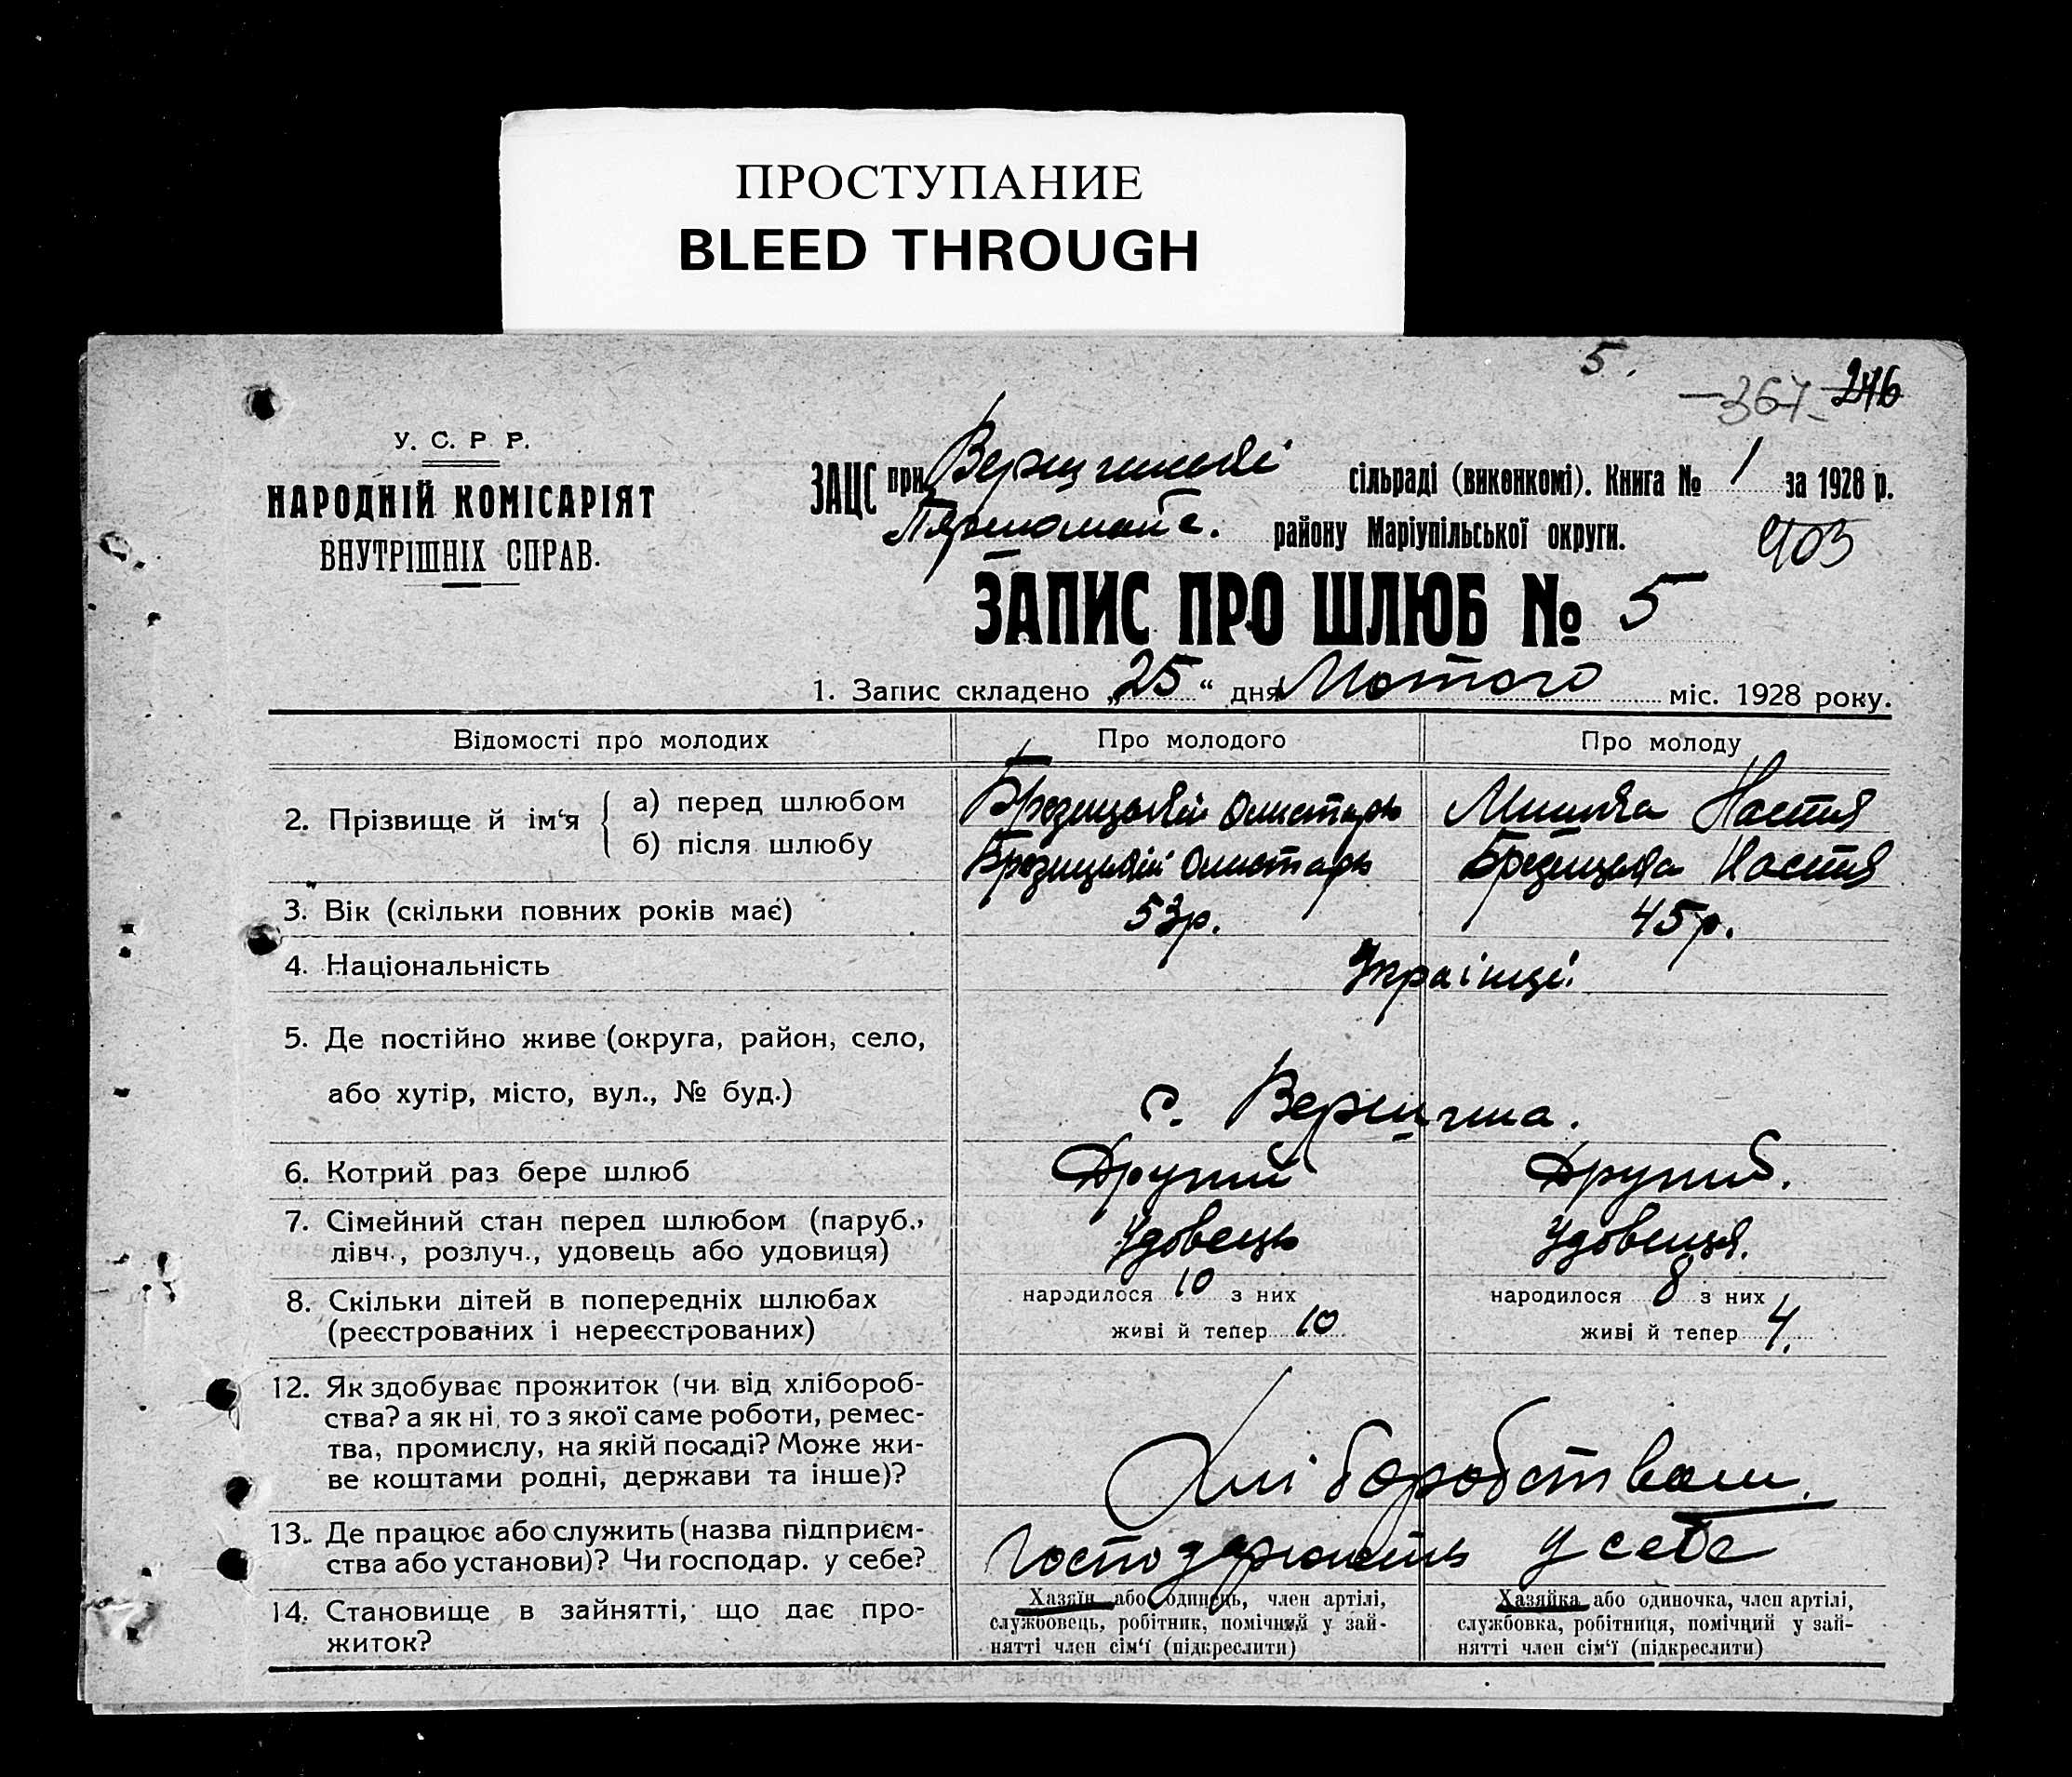 ПРОСТУПАНИЕ
BLEED THROUGH
5.
—367— 246
У. С. Р. Р.
НАРОДНІЙ КОМІСАРІЯТ
ВНУТРІШНІХ СПРАВ.
ЗАЦС при сільраді (виконкомі). Книга № 1 за 1928 р.
району Маріупільської округи.
403
ЗАПИС ПРО ШЛЮБ № 5
1. Запис складено „25“ дня Лютого міс. 1928 року.
Відомості про молодих Про молодого Про молоду
2. Прізвище й ім‘я а) перед шлюбом Настя
б) після шлюбу Настя
3. Вік (скільки повних років має) 53р. 45р.
4. Національність Українці.
5. Де постійно живе (округа, район, село,
або хутір, місто, вул., № буд.) с.
6. Котрий раз бере шлюб Другий Другий.
7. Сімейний стан перед шлюбом (паруб.,
дівч., розлуч., удовець або удовиця) Удовець Удовиця.
8. Скільки дітей в попередніх шлюбах народилося 10 з них народилося 8 з них
(реєстрованих і нереєстрованих) живі й тепер 10 живі й тепер 4.
12. Як здобуває прожиток (чи від хлібороб-
ства? а як ні, то з якої саме роботи, ремес-
тва, промислу, на якій посаді? Може жи-
ве коштами родні, держави та інше)? Хліборобством.
13. Де працює або служить (назва підприєм-
ства або установи)? Чи господар. у себе? у себе
14. Становище в зайнятті, що дає про-
житок?
Хазяїн або одинець, член артілі,
службовець, робітник, помічний у зай-
нятті член сім‘ї (підкреслити)
Хазяйка або одиночка, член артілі,
службовка, робітниця, помічний у зай-
нятті член сім‘ї (підкреслити)